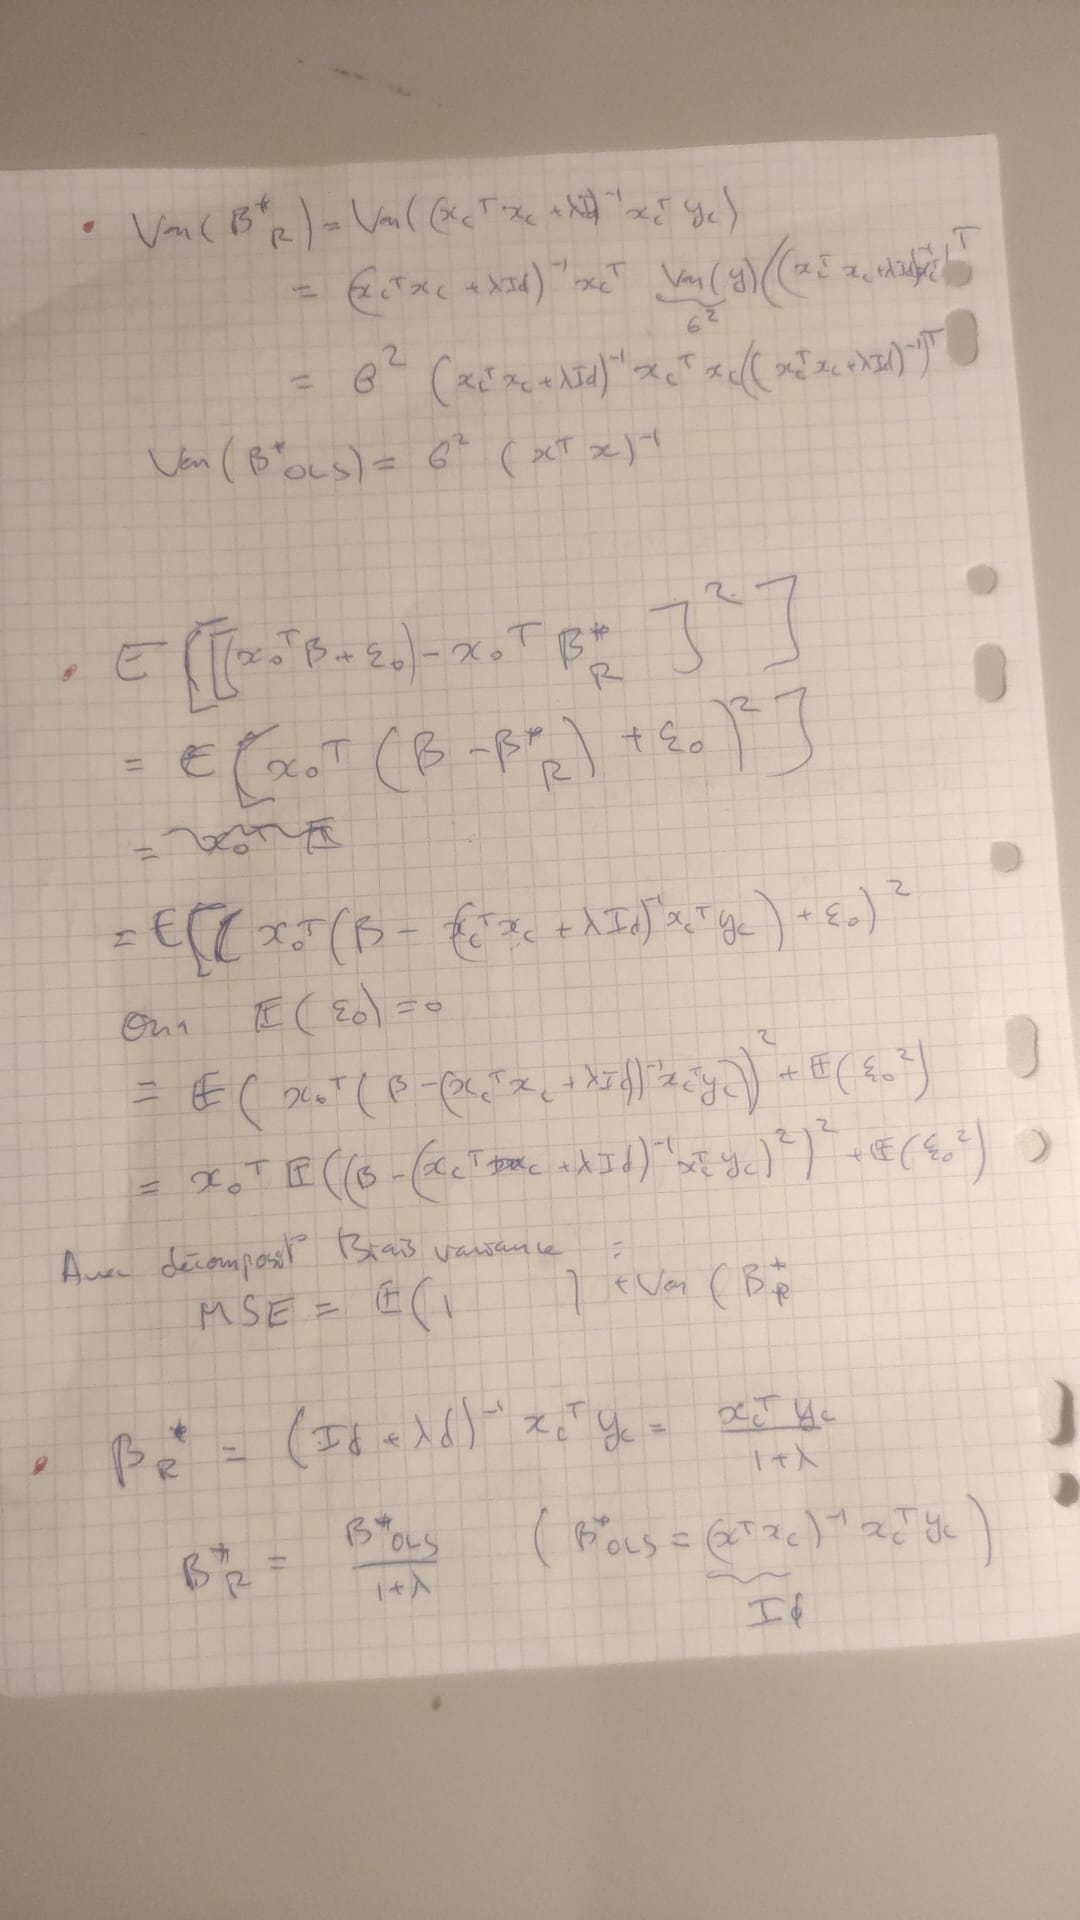 • Var(β*_R) = Var((x_c^T x_c + λId)^-1 x_c^T y_c)
= (x_c^T x_c + λId)^-1 x_c^T Var(y) ((x_c^T x_c + λId)^-1 x_c^T)^T
σ^2
= σ^2 (x_c^T x_c + λId)^-1 x_c^T x_c ((x_c^T x_c + λId)^-1)^T
Var(β*_OLS) = σ^2 (x^T x)^-1
• E[[(x_0^T β + ε_0) - x_0^T β*_R]^2]
= E[x_0^T (β - β*_R) + ε_0)^2]
= x_0^T E
= E[(x_0^T (β - (x_c^T x_c + λId)^-1 x_c^T y_c) + ε_0)^2
On a E(ε_0) = 0
= E(x_0^T (β - (x_c^T x_c + λId)^-1 x_c^T y_c))^2 + E(ε_0^2)
= x_0^T E((β - (x_c^T x_c + λId)^-1 x_c^T y_c)^2)^2 + E(ε_0^2)
Avec décomposit° Biais variance :
MSE = E( ) + Var(β*_R
• β_R* = (Id + λd)^-1 x_c^T y_c = x_c^T y_c / 1+λ
β*_R = β*_OLS / 1+λ (β*_OLS = (x^T x_c)^-1 x_c^T y_c)
Id